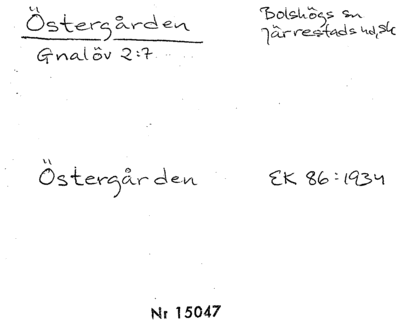 Östergården
Bolshögs sn
Järrestads hd, Sk
Gnalöv 2:7
Östergården
EK 86:1934
Nr 15047